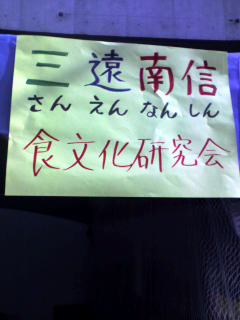 三遠南信
さん えん なん しん
食文化研究会